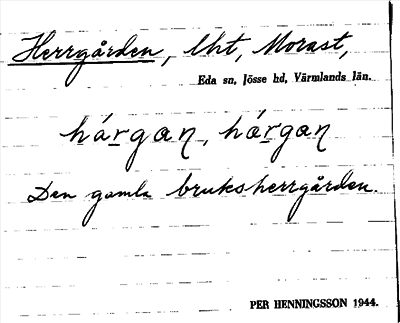 Herrgården, lht, Morast,
Eda sn, Jösse hd, Värmlands län.
hárgan, hárgan
Den gamla bruksherrgården.
PER HENNINGSSON 1944.